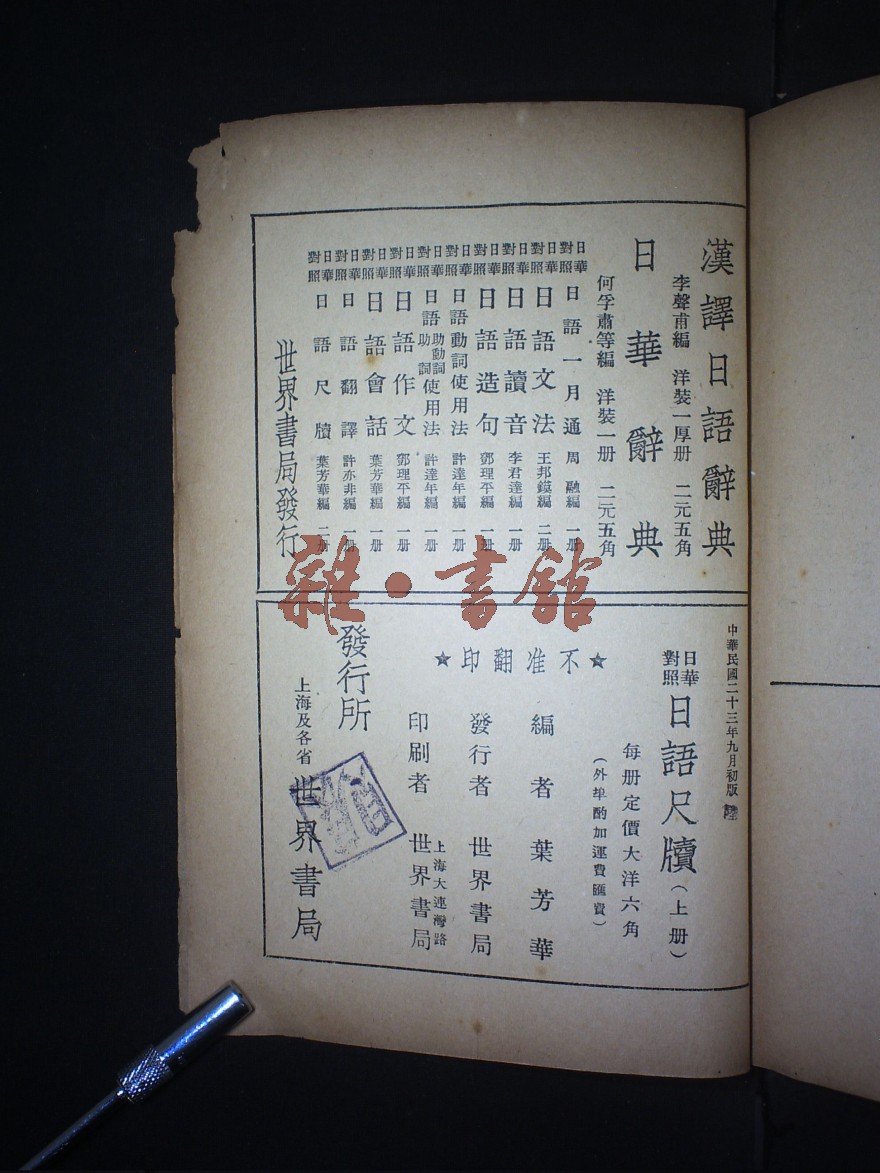 漢譯日語辭典
李聲甫編 洋裝一厚册 二元五角
日華辭典
何孚肅等編 洋裝一册 二元五角
日華對照 日語一月通 周融編 一册
日華對照 日語文法 王邦鏌編 二册
日華對照 日語讀音 李君達編 一册
日華對照 日語造句 鄧理平編 一册
日華對照 日語動詞使用法 許達年編 一册
日華對照 日語助動詞助詞使用法 許達年編 一册
日華對照 日語作文 鄧理平編 一册
日華對照 日語會話 葉芳華編 一册
日華對照 日語翻譯 許亦非編 一册
日華對照 日語尺牘 葉芳華編 二册
世界書局發行
雜·書館
中華民國二十三年九月初版
日華對照 日語尺牘(上册)
每册定價大洋六角
(外埠酌加運費匯費)
★不准翻印★
編者 葉芳華
發行者 世界書局
上海大連灣路
印刷者 世界書局
發行所
上海及各省 世界書局